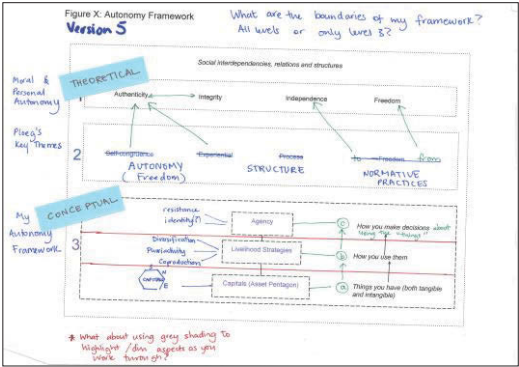 Figure X: Autonomy Framework
Version 5
What are the boundaries of my framework?
All levels or only level 3?
Social interdependencies, relations and structures
Moral &
Personal
Autonomy
THEORETICAL
Authenticity
Integrity
Independence
Freedom
Ploeg's
Key Themes
2
Self-congruence
Experiential
Process
to
Freedom
from
AUTONOMY
(Freedom)
STRUCTURE
NORMATIVE
PRACTICES
CONCEPTUAL
My
Autonomy
Framework
3
resistance
identity(?)
Agency
c
How you make decisions about
using the "things"
Diversification
Pluriactivity
Coproduction
Livelihood Strategies
b
How you use them
CAPITALS
N
E
Capitals (Asset Pentagon)
a
Things you have (both tangible
and intangible)
* What about using grey shading to
highlight / dim aspects as you
work through?